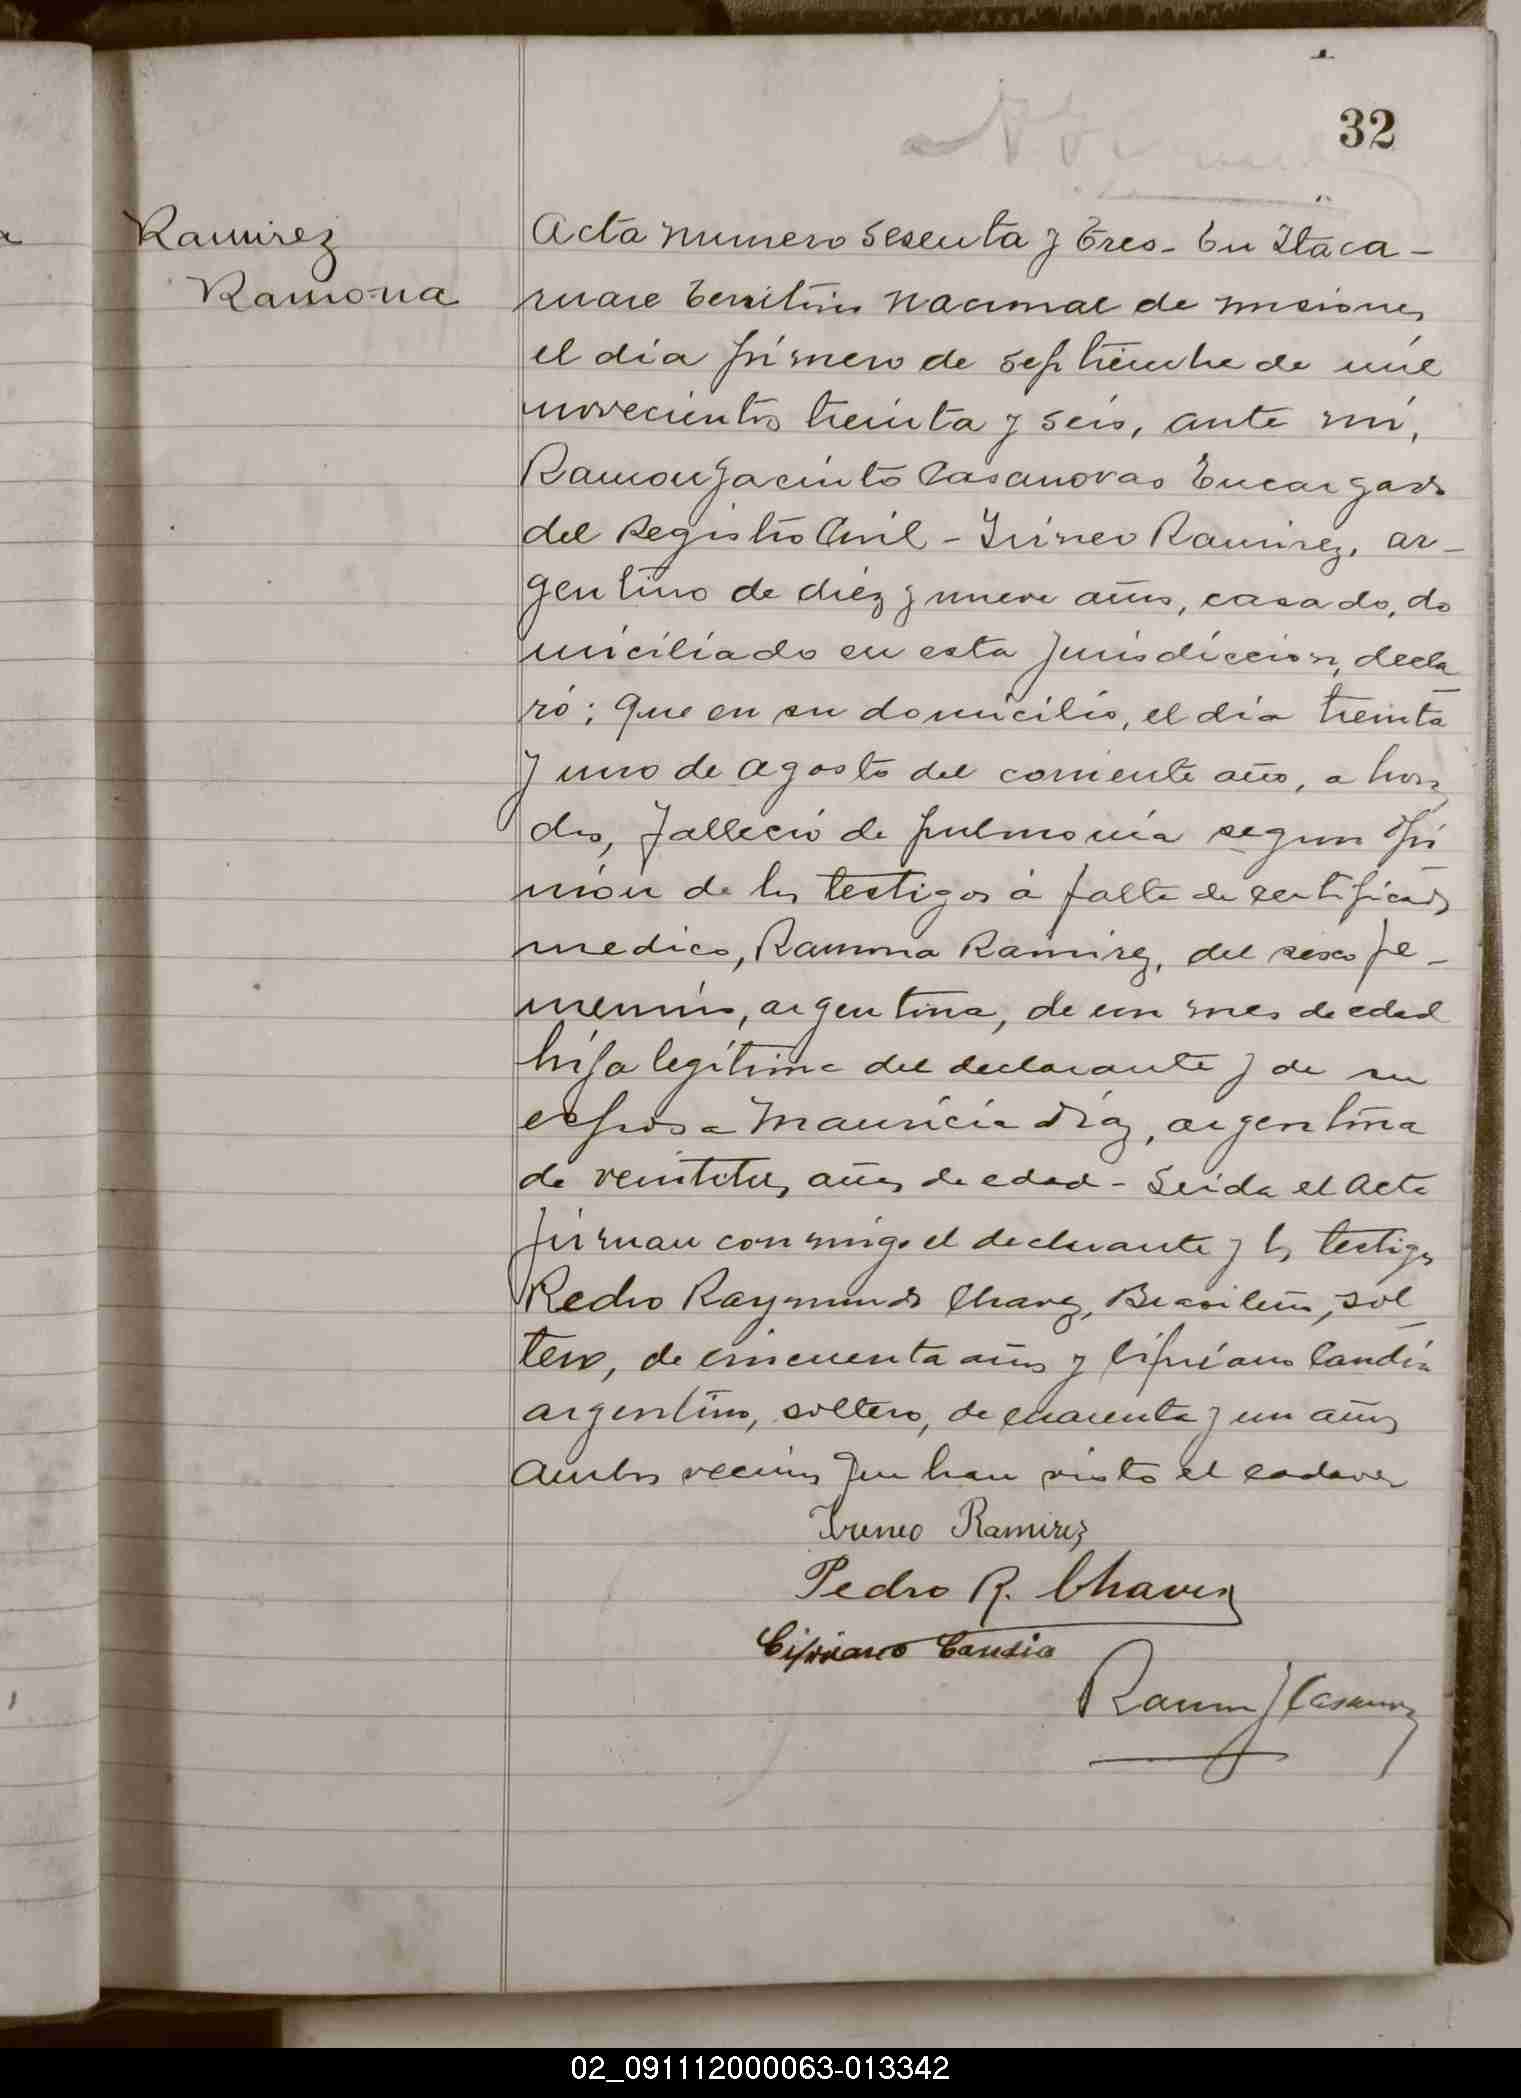 32
Ramirez
Ramona
Acta numero sesenta y tres- En Itaca-
ruare territorio nacional de misiones
el día primero de septiembre de mil
novecientos treinta y seis, ante mi,
Ramon Jacinto Casanovas Encargado
del Registro Civil - Irineo Ramirez, ar-
gentino de diéz y nueve años, casado, do
miciliado en esta jurisdiccion, decla
ró; Que en su domicilio, el día treinta
y uno de agosto del corriente año, a horas
dos, falleció de pulmonía segun opi
nión de los testigos á falta de certificado
medico, Ramona Ramirez, del sexo fe-
menino, argentina, de un mes de edad
hija legítima del declarante y de su
esposa Mauricia Díaz, argentina
de veintitres años de edad - Leida el Acta
firman conmigo el declarante y los testigos
Pedro Raymundo Chavez, Brasileño, sol
tero, de cincuenta años y Cipriano Candia
argentino, soltero, de cuarenta y un años
ambos vecinos que han visto el cadaver
Irineo Ramirez
Pedro R. Chavez
Cipriano Candia
Ramon J Casanovas
02_091112000063-013342